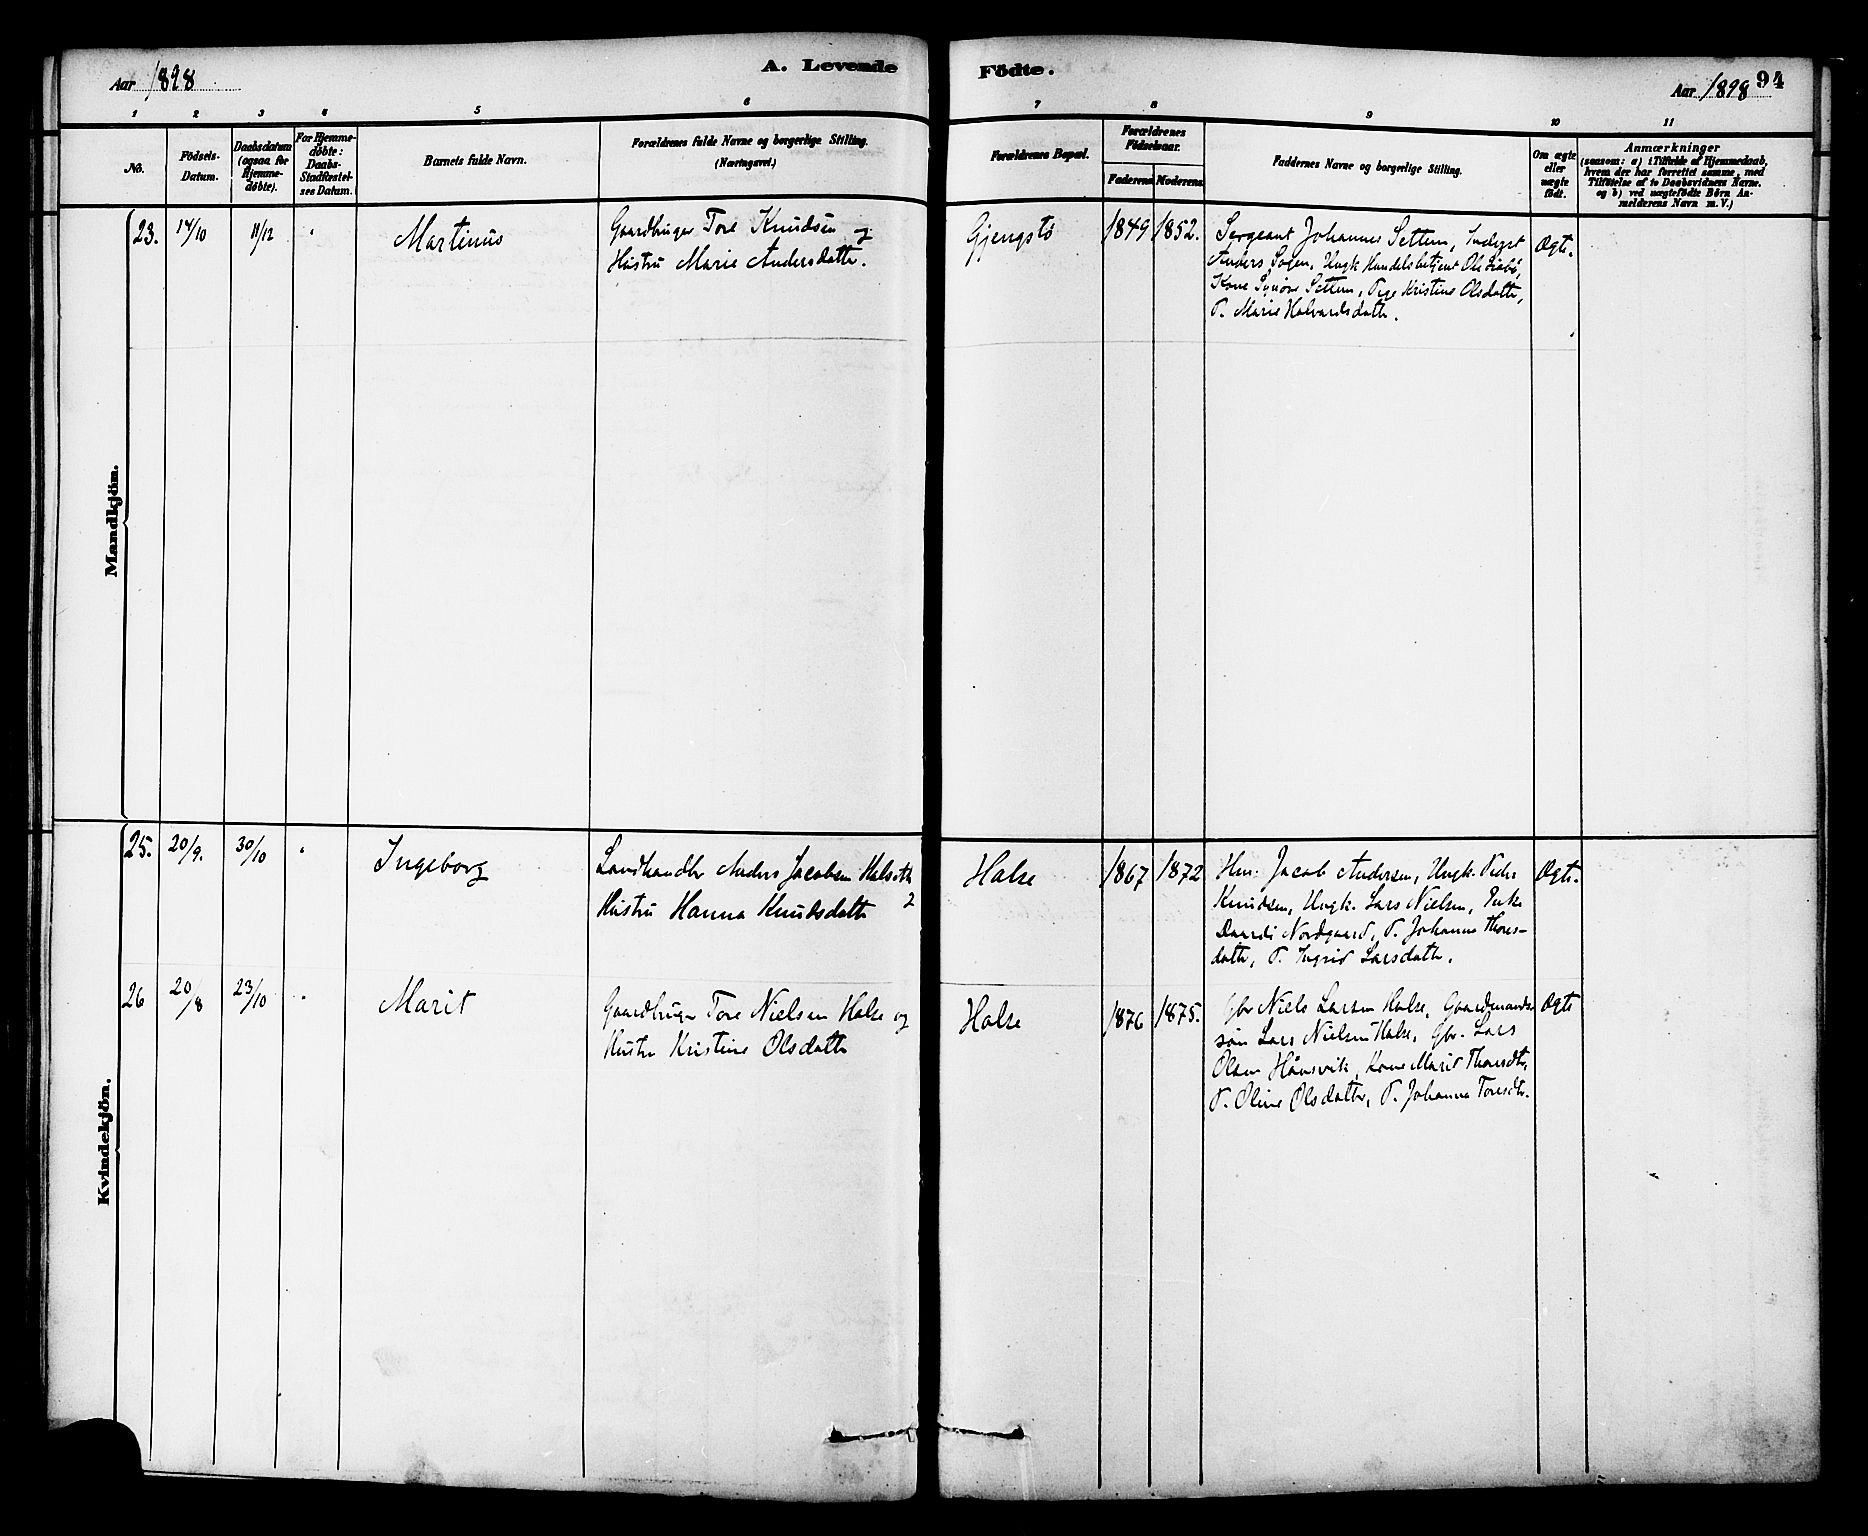 Aar 1898
A. Levende
Födte.
Aar 1898
94
1 2 3 4 5 6 7 8 9 10 11
No.
Födsels-
Datum.
Daabsdatum
(ogsaa for
Hjemme-
døbte).
For Hjemme-
døbte:
Daabs-
Stadfæstel-
ses Datum.
Barnets fulde Navn.
Forældrenes fulde Navne og borgerlige Stilling.
(Næringsvei.)
Forældrenes Bopæl.
Forældrenes
Födselsaar.
Faderens
Moderens
Faddernes Navne og borgerlige Stilling.
Om ægte
eller
uægte
født.
Anmærkninger
(saasom: a) i Tilfælde af Hjemmedaab,
hvem der har forrettet samme, med
Tilföielse af to Daabsvidners Navne.
og b) ved uægtefödte Börn An-
melderens Navn m. V.)
Mandkjön.
23. 14/10 11/12 " Martinus
Gaardbruger Tore Knudsen og
Hustru Marie Andersdatter.
Gjengstø
1849 1852.
Sergeant Johannes Settem, Inderst
Anders Sogen, Ungk Handelsbetjent Ole
Kone Synøve Settem, Pige Kristine Olsdatter,
P. Marie Halvardsdatter.
Ægte.
Kvindekjön.
25. 20/9. 30/10 " Ingeborg
Landhandler Anders Jacobsen Halse og
Hustru Hanna Knudsdatter
Halse
1867 1872
Hm: Jacob Andersen, Ungk. Peder
Knudsen, Ungk. Lars Nielsen, Enke
Nordgaard, P. Johanna Thores-
datter, P. Ingrid Larsdatter.
Ægte.
26 20/8 23/10 " Marit
Gaardbruger Tore Nielsen Halse og
Hustru Kristine Olsdatter
Halse
1876 1875.
Gbr Niels Larsen Halse, Gaardmands-
søn Lars Nielsen Halse, Gbr. Lars
Olsen Hånsvik, Kone Marit Thoresdtr,
P. Oline Olsdatter, P. Johanna Toresdtr.
Ægte